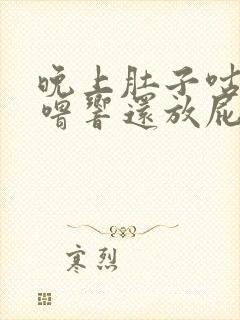 晚上肚子咕
嚕響還放屁
寒烈